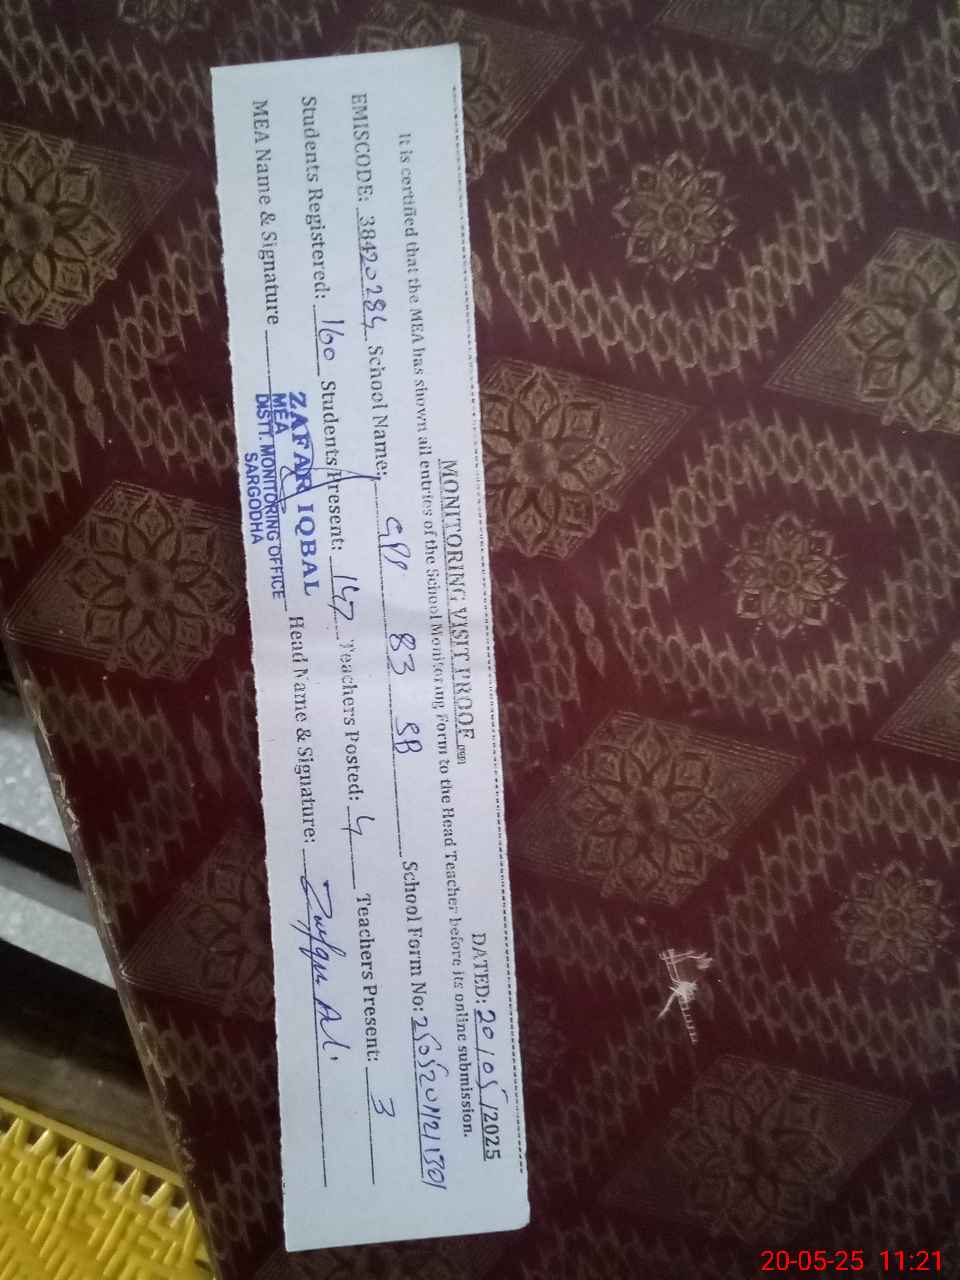 MONITORING VISIT PROOF
DATED: 20/05/2025
It is certified that the MEA has shown all entries of the School Monitoring Form to the Head Teacher before its online submission.
EMISCODE: 38420284 School Name: GPS 83 SB School Form No:
Students Registered: 160 Students Present: 147 Teachers Posted: 4 Teachers Present: 3
MEA Name & Signature Head Name & Signature:
ZAFAR IQBAL
MEA
DISTT. MONITORING OFFICE
SARGODHA
20-05-25 11:21